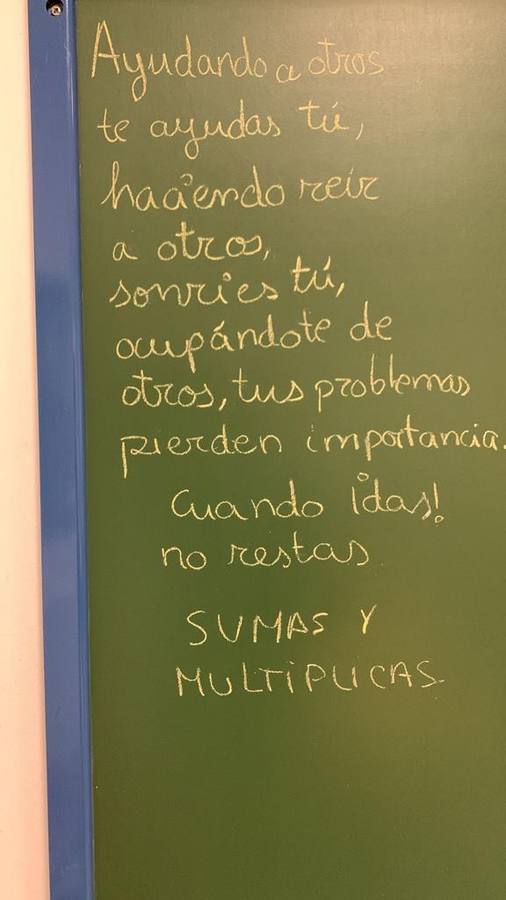 Ayudando a otros
te ayudas tú,
haciendo reír
a otros,
sonries tú,
ocupándote de
otros, tus problemas
pierden importancia.
Cuando ¡das!
no restas
SUMAS Y
MULTIPLICAS.